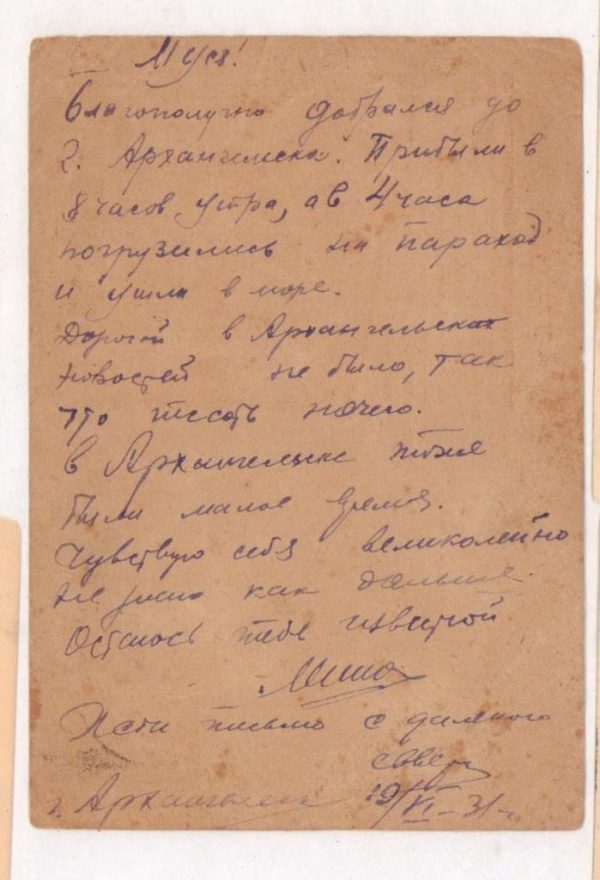 Муся!
Благополучно добрался до
г. Архангельска. Прибыли в
8 часов утра, а в 4 часа
погрузились на параход
и ушли в море.
Дорогой в Архангельск
новостей не было, так
что писать нечего.
в Архангельске тоже
были малое время.
Чувствую себя великолепно
Не знаю как дальше.
Остаюсь тебе известной
Миша
Жди письмо с далекого
севера
г. Архангельск 19/VI-31 г.